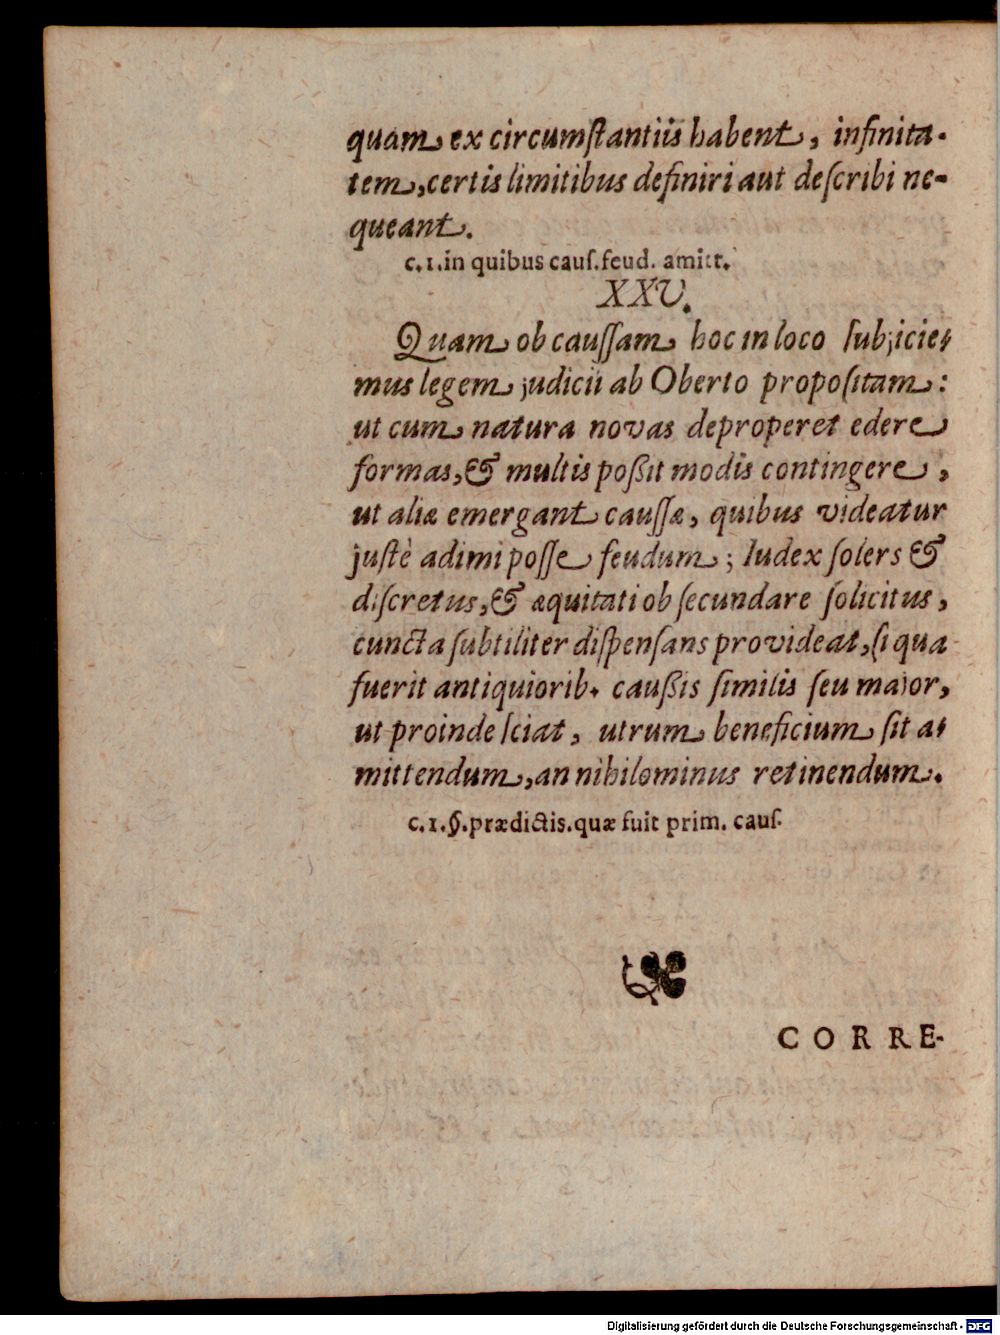 quam ex circumſtantiis habent, infinita-
tem, certis limitibus definiri aut deſcribi ne-
queant.
c. 1. in quibus cauſ. feud. amitt.
XXV.
Quam ob cauſſam hoc in loco ſubjicie-
mus legem judicii ab Oberto propoſitam:
ut cum natura novas deproperet edere
formas, & multis poßit modis contingere,
ut aliæ emergant cauſſæ, quibus videatur
juſtè adimi poſſe feudum; Iudex ſolers &
diſcretus, & æquitati obſecundare ſolicitus,
cuncta ſubtiliter diſpenſans provideat, ſi qua
fuerit antiquiorib. caußis ſimilis ſeu major,
ut proinde ſciat, utrum beneficium ſit a-
mittendum, an nihilominus retinendum.
c. 1. §. prædictis. quæ fuit prim. cauſ.
CORRE-
Digitalisierung gefördert durch die Deutsche Forschungsgemeinschaft - DFG